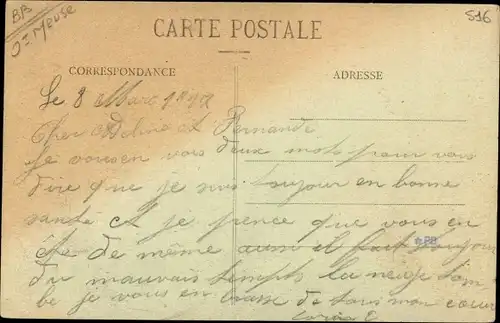 BB
Jn Meuse
516
CARTE POSTALE
CORRESPONDANCE
ADRESSE
Le 8 Mars
Cher et Fernande
Je vousen vois deux mots pour vous
dire que je suis toujour en bonne
santé et je pence que vous en
ête de même aussi il fait toujour
du mauvais temps la neige tom
be je vous en brasse de tous mon cœur
BB